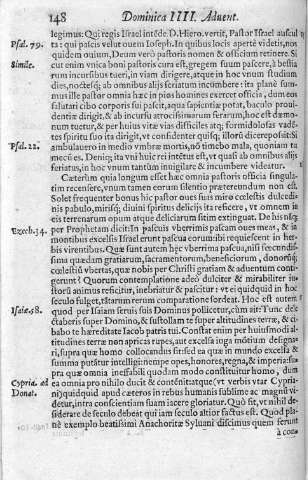 148 Dominica IIII. Aduent.
legimus: Qui regis Israel intēde. D. Hiero. vertit, Pastor Israel auscul
Psal. 79. ta: qui pascis velut ouem Ioseph. In quibus locis apertè videtis, nos
quidem ouium, Deum verò pastoris nomen & officium retinere. Si
Simile. cut enim vnica boni pastoris cura est, gregem suum pascere, à bestia
rum incursibus tueri, in viam dirigere, atque in hoc vnum studium
dies, noctesq; ab omnibus alijs feriatum incumbere: ita planè sum-
mus ille pastor omnia hæc in pios homines exercet officia, dum eos
salutari cibo corporis sui pascit, aqua sapientiæ potat, baculo proui-
dentiæ dirigit, & ab incursu atrocissimarum ferarum, hoc est dæmo-
num tuetur, & per huius vitæ vias difficiles atq; formidolosas vadē-
tes spiritu suo ita dirigit, vt confidenter quisq; illorū dicere possit: Si
Psal. 22. ambulauero in medio vmbræ mortis, nō timebo mala, quoniam tu
mecū es. Deniq; ita vni huic rei intētus est, vt quasi ab omnibus alijs
feriatus, in hoc vnum tantùm inuigilare & incumbere videatur.
Cæterùm quia longum esset hæc omnia pastoris officia singula-
tim recensere, vnum tamen eorum silentio prætereundum non est.
Solet frequenter bonus hic pastor oues suas mira cœlestis dulcedi-
nis pabulo, mirisq; diuini spiritus delicijs ita reficere, vt omnem in
eis terrenarum opum atque deliciarum sitim extinguat. De his nāq;
Ezech. 34. per Prophetam dicit: In pascuis vberrimis pascam oues meas, & in
montibus excelsis Israel erunt pascua eorum: ibi requiescent in her-
bis virentibus. Quæ sunt autem hæc vberrima pascua, nisi fœcundis-
sima quædam gratiarum, sacramentorum, beneficiorum, donorūq;
cœlestiū vbertas, quæ nobis per Christi gratiam & aduentum conti-
gerunt? Quorum contemplatione adeò dulciter & mirabiliter iu-
storū animi reficitur, inebriatur, & pascitur: vt ei quidquid in hoc
seculo fulget, tātarum rerum comparatione sordeat. Hoc est autem
Isaiæ. 58. quod per Isaiam fruis suis Dominus pollicetur, cùm ait: Tunc de-
lectaberis super Domino, & sustollam te super altitudines terræ, & ci-
babo te hæreditate Iacob patris tui. Constat enim per huiusmodi al-
titudines terræ non apricas rupes, aut excelsa iuga mōtium designa-
ri, supra quæ homo collocandus sit: sed ea quæ in mundo excelsa &
summa putātur intelligi: nempe opes, honores, regna, & imperia: su-
pra quæ omnia ineffabili quodam modo constituitur homo, dum
Cypria. ad ea omnia pro nihilo ducit & contēnit: atque (vt verbis vtar Cypria-
Donat. ni) quidquid apud cæteros in rebus humanis sublime ac magnū vi-
detur, intra conscientiam suam iacere gloriatur. Quò fit, vt nihil de-
siderare de seculo debeat qui iam seculo altior factus est. Quod pla-
nè exemplo beatissimi Anachoritæ Syluani discimus quem ferunt
à con-